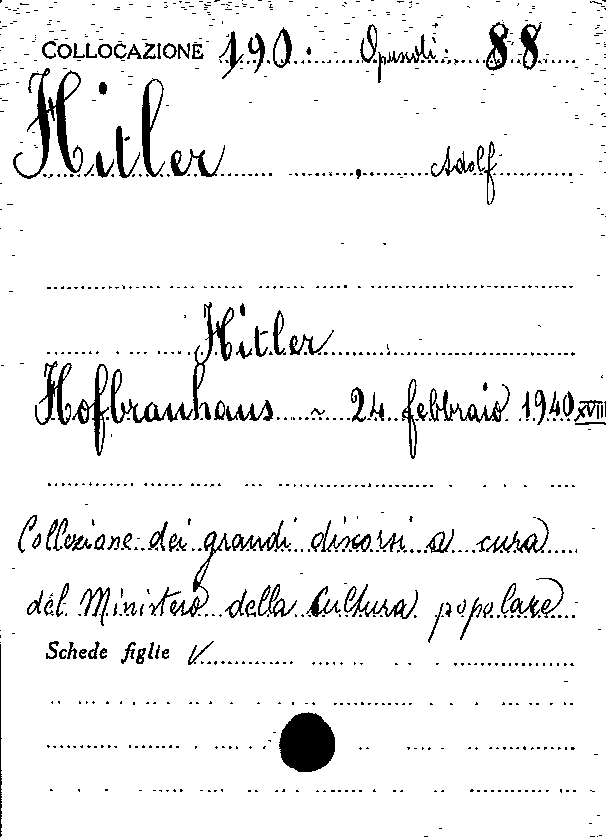 COLLOCAZIONE 190. Opuscoli. 88
Hitler, Adolf
Hitler
Hofbranhaus ~ 24 febbraio 1940 XVIII
Collezione dei grandi discorsi a cura
del Ministero della Cultura popolare
Schede figlie V